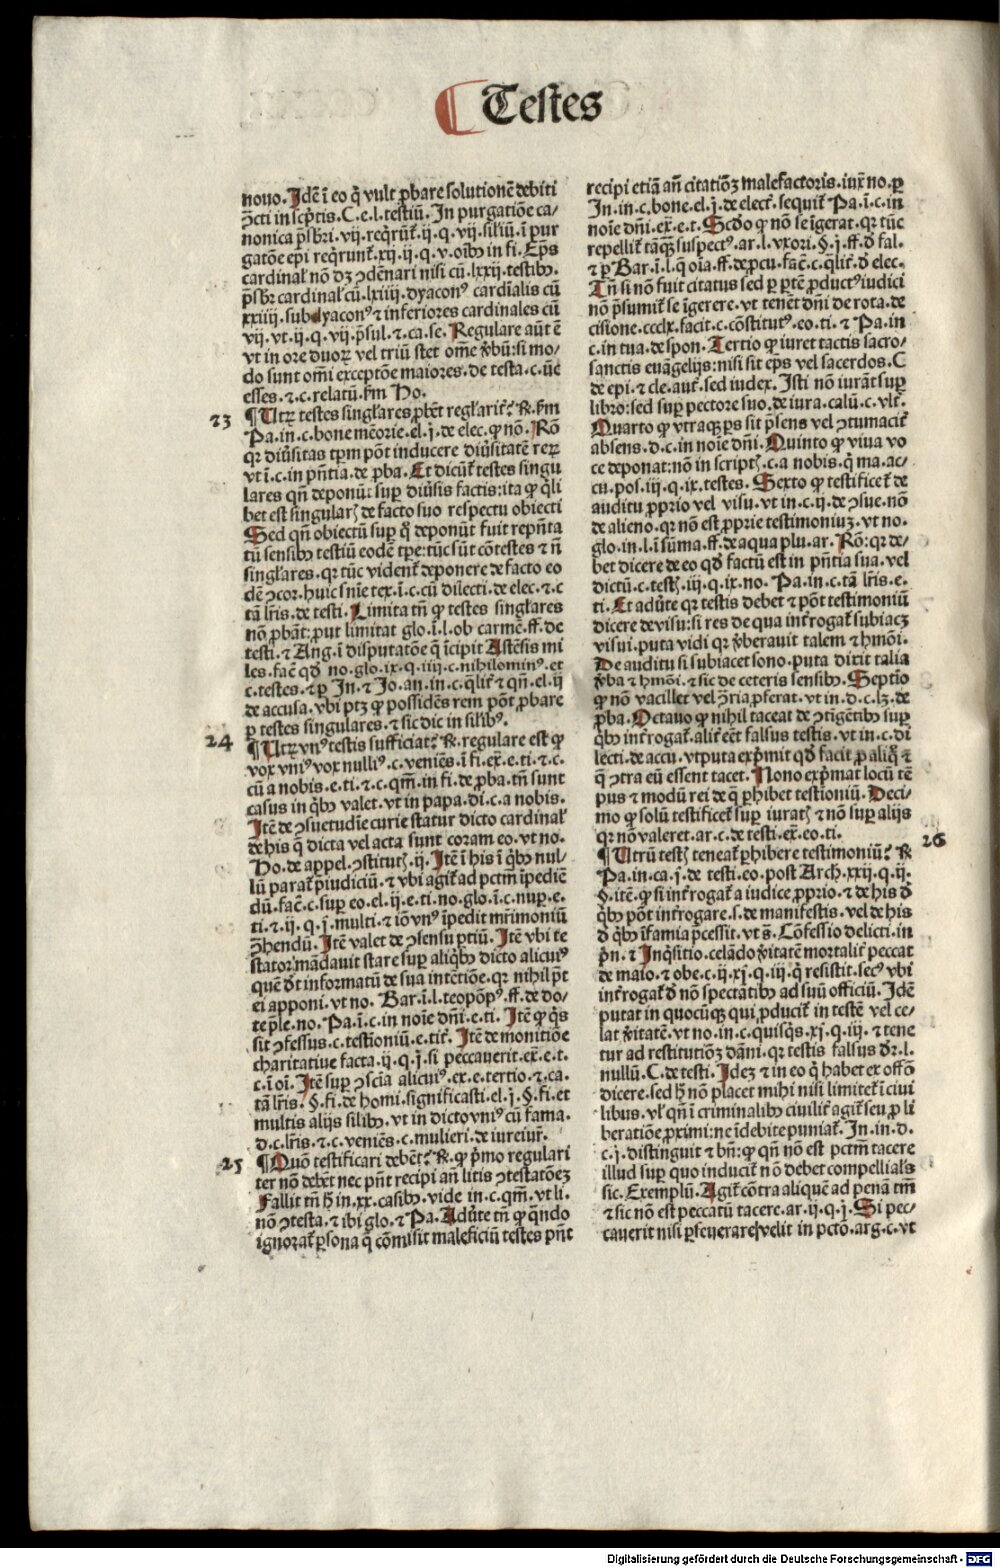 Testes
nouo. Idē ī eo q̄ vult ꝓbare solutionē debiti
ↄcti in scp̄tis. C. e. l. testiū. In purgatiōe ca/
nonica p̄sbri. vij. req̄rūt̄. ij. q. vij. siliū. ī pur
gatōe epi req̄runt̄. xij. ij. q. v. oībꝰ in fi. Ep̄s
cardinal̄ nō dꝫ ↄdēnari nisi cū. lxxij. testibꝰ.
p̄sbr̄ cardinal̄ cū. lxiiij. dyaconꝰ cardīalis cū
xxiiij. subdyaconꝰ ⁊ inferiores cardinales cū
vij. vt. ij. q. vij. p̄sul. ⁊. ca. se. Regulare aūt ē
vt in ore duoꝝ vel triū stet om̄e v̄bū: si mo/
do sunt om̄i exceptōe maiores. de testa. c. ūe
esses. ⁊. c. relatū. ẜm Ho.
23
¶ Utꝝ testes singl̓ares ꝓbēt regl̓arit̄? R̄. ẜm
Pa. in. c. bone mēorie. el. j. de elec. ꝙ nō. Rō
qr diūsitas tꝑm pōt inducere diūsitatē reꝝ
vt ī. c. in pn̄tia. de ꝓba. Et dicūt̄ testes singu
lares qn̄ deponūt suꝑ diūsis factis: ita ꝙ q̄li
bet est singularꝭ de facto suo respectu obiecti
Sed qn̄ obiectū suꝑ q̄ deponūt fuit rep̄nta
tū sensibꝰ testiū eodē tꝑe: tūc sūt cōtestes ⁊ n̄
singl̓ares. qr tūc vident̄ deponere de facto eo
dē ↄcor. huic sn̄ie tex. ī. c. cū dilecti. de elec. ⁊. c
tā lr̄is. de testi. Limita tn̄ ꝙ testes singl̓ares
nō ꝓbāt: ꝓut limitat glo. ī. l. ob carmē. ff. de
testi. ⁊ Ang. ī disputatōe q̄ īcipit Astēsis mi
les. fac̄ qd̓ no. glo. ix. q. iiij. c. nihilominꝰ. et
c. testes. ⁊ ꝑ In. ⁊ Io. an. in. c. q̄lit̄ ⁊ qn̄. el. ij
de accusa. vbi ptꝫ ꝙ possidēs rem pōt ꝓbare
ꝑ testes singulares. ⁊ sic dic in sil̓ibꝰ.
24
¶ Utꝝ vnꝰ testis sufficiat? R̄. regulare est ꝙ
vox vniꝰ vox nulliꝰ. c. veniēs. ī fi. ex̄. e. ti. ⁊. c.
cū a nobis. e. ti. ⁊. c. qm̄. in fi. de ꝓba. tn̄ sunt
casus in q̄bꝰ valet. vt in papa. di. c. a nobis.
Itē de ↄsuetudīe curie statur dicto cardinal̄
de his q̄ dicta vel acta sunt coram eo. vt no.
Ho. de appel. ↄstitutꝭ. ij. Itē ī his ī q̄bꝰ nul/
lū parat̄ p̄iudiciū. ⁊ vbi agit̄ ad pctm̄ īpediē
dū. fac̄. c. suꝑ eo. el. ij. e. ti. no. glo. ī. c. nuꝑ. e.
ti. ⁊. ij. q. j. multi. ⁊ iō vnꝰ īpedit mr̄imoniū
ↄ̄hendū. Itē valet de ↄsensu ꝑtiū. Itē vbi te
stator mādauit stare suꝑ aliq̄bꝰ dicto alicuiꝰ
quē d̓t informatū de sua intētiōe. qr nihil p̄t
ei apponi. vt no. Bar. ī. l. teopōpꝰ. ff. de do/
te p̄le. no. Pa. ī. c. in noīe dn̄i. e. ti. Itē ꝙ q̄s
sit ↄfessus. c. testioniū. e. tit̄. Itē de monitiōe
charitatiue facta. ij. q. j. si peccauerit. ex̄. e. t.
c. ī oī. Itē suꝑ ↄscīa alicuiꝰ. ex. e. tertio. ⁊. ca.
tā lr̄is. §. fi. de homi. significasti. el. j. §. fi. et
multis alijs silibꝰ. vt in dicto vniꝰ cū fama.
d. c. lr̄is. ⁊. c. veniēs. c. mulieri. de iureiur̄.
25
¶ Quō testificari debēt? R̄. ꝙ p̄mo regulari
ter nō debēt nec pn̄t recipi an̄ litis ↄtestatōeꝫ
Fallit tn̄ h̄ in. xx. casibꝰ. vide in. c. qm̄. vt li.
nō ↄtesta. ⁊ ibi glo. ⁊ Pa. Adūte tn̄ ꝙ qn̄do
ignorat̄ ꝑsona q̄ cōmisit maleficiū testes pn̄t
recipi etiā an̄ citatiōꝫ malefactoris. iux̄ no. ꝑ
In. in. c. bone. el. j. de elect̄. sequit̄ Pa. ī. c. in
noīe dn̄i. ex̄. e. t. Scd̓o ꝙ nō se īgerat. qr tūc
repellit̄ tāq̄ꝫ suspectꝰ. ar. l. vxori. §. j. ff. d̓ fal.
⁊ ꝑ Bar. ī. l. q̄ oīa. ff. de ꝓcu. fac̄. c. q̄lit̄. d̓ elec.
Tn̄ si nō fuit citatus sed ꝑ ꝑtē ꝓductꝰ iudici
nō p̄sumit̄ se īgerere. vt tenēt dn̄i de rota. de
cisione. ccclx. facit. c. cōstitutꝰ. eo. ti. ⁊ Pa. in
c. in tua. de spon. Tertio ꝙ iuret tactis sacro/
sanctis euāgelijs: nisi sit ep̄s vel sacerdos. C
de epi. ⁊ cle. aut̄. sed iudex. Isti nō iurāt suꝑ
libro: sed suꝑ pectore suo. de iura. calū. c. vlt̄.
Quarto ꝙ vtraqꝫ ꝑs sit p̄sens vel ↄtumacit̄
absens. d. c. in noīe dn̄i. Quinto ꝙ viua vo
ce deponat: nō in scriptꝭ. c. a nobis. q̄ ma. ac/
cu. pos. iij. q. ix. testes. Sexto ꝙ testificet̄ de
auditu ꝓprio vel visu. vt in. c. ij. de ↄsue. non
de alieno. qr nō est ꝓprie testimoniuꝫ. vt no.
glo. in. l. ī sūma. ff. de aqua plu. ar. Rō: qr de/
bet dicere de eo qd̓ factū est in pn̄tia sua. vel
dictū. c. testꝭ. iij. q. ix. no. Pa. in. c. tā lr̄is. e.
ti. Et adūte qr testis debet ⁊ pōt testimoniū
dicere de visu: si res de qua int̄rogat̄ subiacꝫ
visui. puta vidi qr v̄berauit talem ⁊ hmōi.
De auditu si subiacet sono. puta dixit talia
v̄ba ⁊ hmōi. ⁊ sic de ceteris sensibꝰ. Septīo
ꝙ nō vacillet vel ↄ̄ria ꝓferat. vt in. d. c. lꝫ. de
ꝓba. Octauo ꝙ nihil taceat de ↄtīgētibꝰ suꝑ
q̄bꝰ int̄rogat̄. alit̄ eēt falsus testis. vt in. c. di
lecti. de accu. vtputa exp̄mit qd̓ facit ꝓ aliq̄ ⁊
q̄ ↄtra eū essent tacet. Nono exp̄mat locū tē
pus ⁊ modū rei de q̄ ꝑhibet testioniū. Deci/
mo ꝙ solū testificet̄ suꝑ iuratꝭ ⁊ nō suꝑ alijs
qr nō valeret. ar. c. de testi. ex̄. eo. ti.
26
¶ Utrū testꝭ teneat̄ ꝑhibere testimoniū? R̄
Pa. in ca. j. de testi. eo. post Arch. xxij. q. ij.
§. itē. ꝙ si int̄rogat̄ a iudice ꝓprio. ⁊ de his d̓
q̄bꝰ pōt int̄rogare. s. de manifestis. vel de his
d̓ q̄bꝰ īfamia p̄cessit. vt s̄. Cōfessio delicti. in
pn̄. ⁊ Inq̄sitio. celādo v̄itatē mortalit̄ peccat
de maio. ⁊ obe. c. ij. xj. q. iij. q̄ resistit. secꝰ vbi
int̄rogat̄ d̓ nō spectātibꝰ ad suū officiū. Idē
putat in quocūqꝫ qui ꝓducit̄ in testē vel ce/
lat v̄itatē. vt no. in. c. quisq̄s. xj. q. iij. ⁊ tene
tur ad restitutiōꝫ dāni. qr testis falsus d̓r. l.
nullū. C. de testi. Ideꝫ ⁊ in eo q̄ habet ex offō
dicere. sed h̄ nō placet mihi nisi limitet̄ ī ciui
libus. vl̓ qn̄ ī criminalibꝰ ciuilit̄ agit̄ seu ꝓ li
beratiōe ꝓximi: ne īdebite puniat̄. In. in. d.
c. j. distinguit ⁊ bn̄: ꝙ qn̄ nō est pctm̄ tacere
illud suꝑ quo inducit̄ nō debet compelli als̄
sic. Exemplū. Agit̄ cōtra aliquē ad penā tm̄
⁊ sic nō est peccatū tacere. ar. ij. q. j. Si pec/
cauerit nisi ꝑseuerare velit in pctō. arg. c. vt
Digitalisierung gefördert durch die Deutsche Forschungsgemeinschaft - DFG